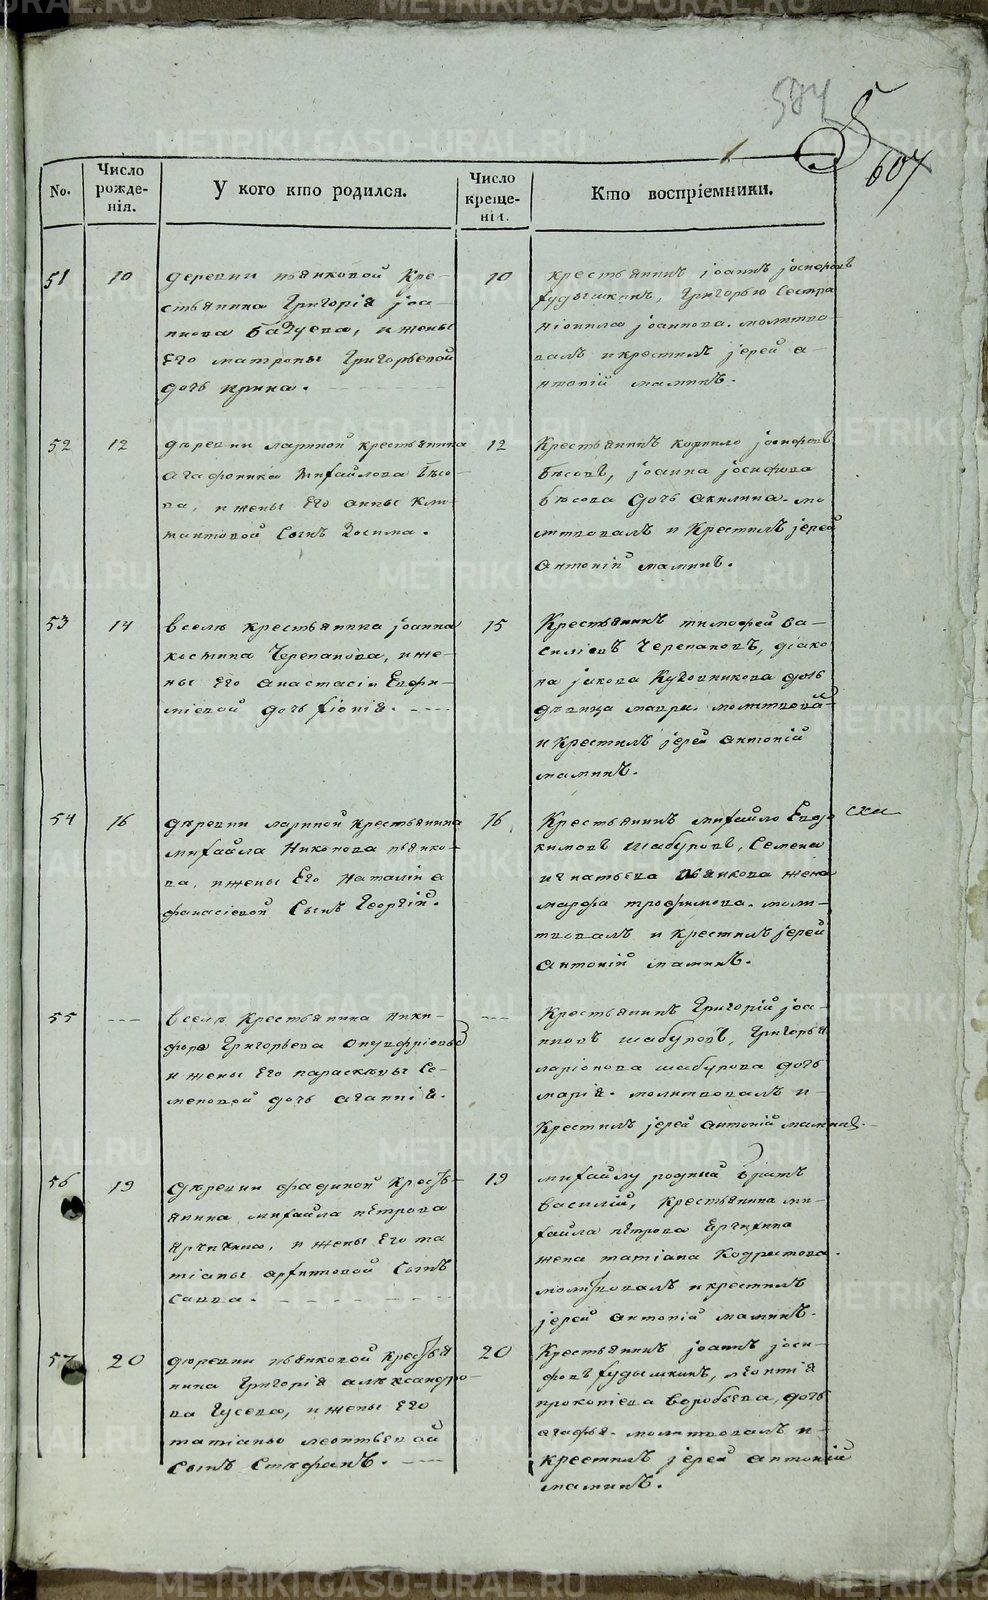 584
607
No.
Число рожденія.
У кого кто родился.
Число крещенія.
Кто воспріемники.
51
10
деревни пьянковой кре-
стьянина Григорія Іоа-
ннова Базуева, и жены
его матроны Григорьевой
дочь ирина.
10
крестьянинъ Іоаннъ Іосифовъ
худышкинъ, Григорью сестра
Неонила Іоаннова. молитво-
валъ и крестилъ Іерей а-
нтоній маминъ.
52
12
деревни лариной крестьянина
агафоника михайлова бѣсо-
ва, и жены его анны кли-
ментовой сынъ Зосима.
12
Крестьянинъ корнило Іосифовъ
бѣсовъ, Іоанна Іосифова
бѣсова дочь акилина. мо-
литвовалъ и крестилъ Іерей
антоній маминъ.
53
14
в селѣ крестьянина Іоанна
костина Черепанова, и же-
ны его анастасіи Евфи-
міевой дочь хіонія.
15
Крестьянинъ тимофей ва-
силіевъ Черепановъ, діако-
на Іакова Кузовникова дочь
дѣвица мавра. молитвовал
и крестилъ Іерей антоній
маминъ.
54
16
деревни лариной крестьянина
михайла Никонова пьянко-
ва, и жены Его наталіи а-
фанасіевой Сынъ Георгій.
16
Крестьянинъ михайло Евдо-
кимовъ шабуровъ, Семена
игнатьева пьянкова жена
марфа трофимова. моли-
твовалъ и крестилъ Іерей
антоній маминъ.
55
в селѣ крестьянина ники-
фора Григорьева онуфріевы
и жены Его параскевы Се-
меновой дочь агапнія.
Крестьянинъ Григорій Іоа-
нновъ шабуровъ, Григорья
ларіонова шабурова дочь
марія. молитвовалъ и
Крестилъ Іерей антоній маминъ.
56
19
деревни фадиной Кресть-
янина михайла петрова
ярчихина, и жены Его та-
тіаны архиповой сынъ
Савва.
19
михайлу родный братъ
василій, крестьянина ми-
хайла петрова Ерчихина
жена татіана Кодратова.
молитвовалъ и крестилъ
Іерей антоній маминъ.
57
20
деревни пьянковой кресть
нина Григорія александро-
ва Гусева, и жены Его
татіаны леонтьевой
Сынъ Стефанъ.
20
Крестьянинъ Іоаннъ Іоси-
фовъ худышкинъ, леонтія
прокопіева воробьева, дочь
агафья. молитвовалъ и
крестилъ Іерей антоній
маминъ.
METRIKI.GASO-URAL.RU